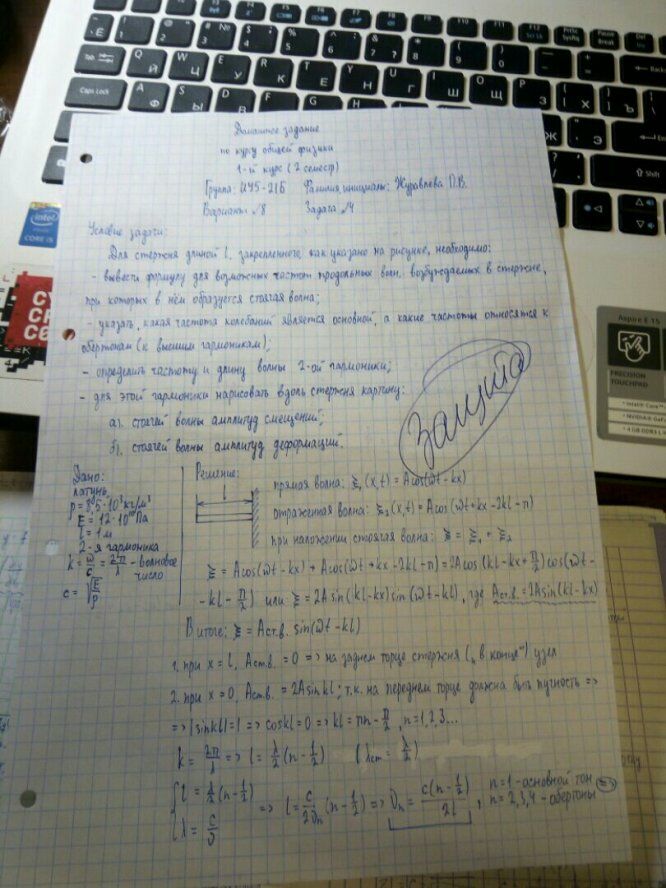 Домашнее задание
по курсу общей физики
1-й курс (2 семестр)
Группа: ИУ5-21Б Фамилия, инициалы: Журавлева П.В.
Вариант №8 Задача №4
Условие задачи:
Для стержня длиной l, закрепленного, как указано на рисунке, необходимо:
- вывести формулу для возможных частот продольных волн, возбуждаемых в стержне,
при которых в нём образуется стоячая волна;
- указать, какая частота колебаний является основной, а какие частоты относятся к
обертонам (к высшим гармоникам);
- определить частоту и длину волны 2-ой гармоники;
- для этой гармоники нарисовать вдоль стержня картину:
а). стоячей волны амплитуд смещений;
б). стоячей волны амплитуд деформаций.
Защита
Дано:
латунь
ρ = 8,5·10³ кг/м³
E = 12·10¹⁰ Па
l = 1 м
2-я гармоника
k = ω/c = 2π/λ - волновое
число
c = √(E/ρ)
Решение:
прямая волна: ξ₁(x,t) = Acos(ωt-kx)
отраженная волна: ξ₂(x,t) = Acos(ωt+kx-2kl-π)
при наложении стоячая волна: ξ = ξ₁ + ξ₂
ξ = Acos(ωt-kx) + Acos(ωt+kx-2kl-π) = 2Acos(kl-kx+π/2)cos(ωt-
-kl-π/2) или ξ = 2Asin(kl-kx)sin(ωt-kl), где Aст.в. = 2Asin(kl-kx)
В итоге: ξ = Aст.в. sin(ωt-kl)
1. при x = l, Aст.в. = 0 => на заднем торце стержня („в конце“) узел
2. при x=0, Aст.в. = 2Asinkl; т.к. на переднем торце должна быть пучность =>
=> |sinkl| = 1 => coskl = 0 => kl = πn-π/2, n=1,2,3...
k = 2π/λ => l = λ/2 (n-1/2) (λст = λ/2)
{ l = λ/2 (n-1/2) => l = c/2νn (n-1/2) => νn = c(n-1/2)/2l, n=1 - основной тон
λ = c/ν n=2,3,4 - обертоны =>
Intel
CORE i5
Aspire E 15
PRECISION
TOUCHPAD
Caps Lock
Tab
Shift
Enter